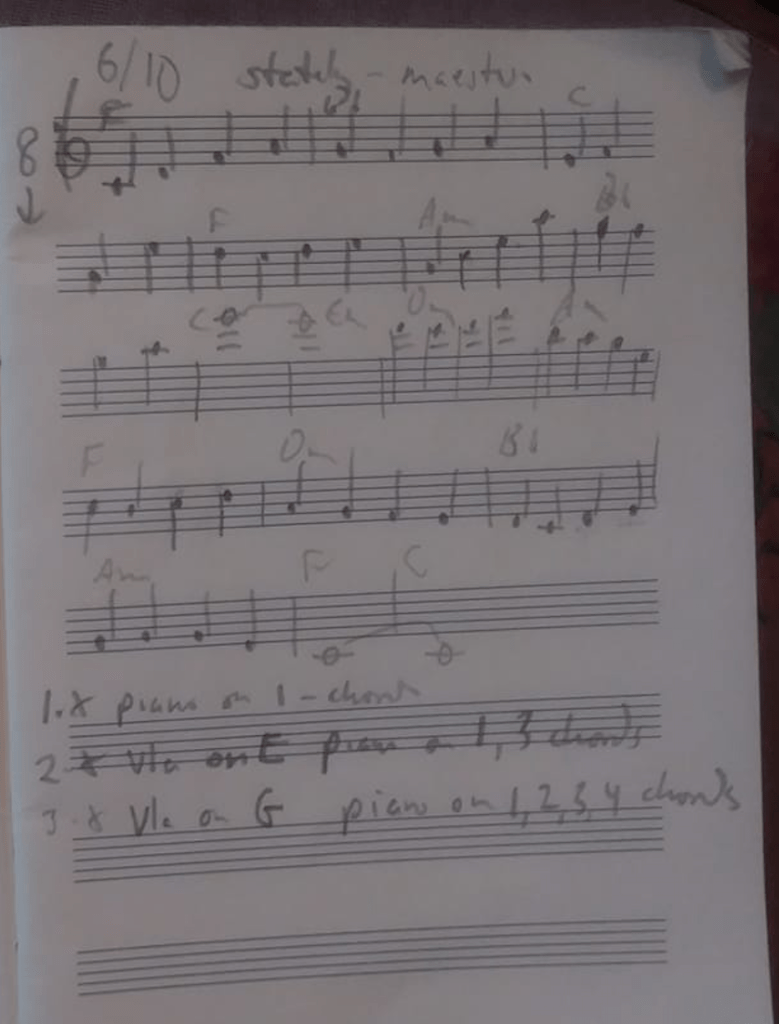 6/10 stately - maestu.
8
F Bb C
F Am Bb
C Em Dm Am
F Dm Bb
Am F C
1.* piano on 1 - chord
2 * Vla on E piano on 1, 3 chords
3 * Vla on G piano on 1, 2, 3, 4 chords